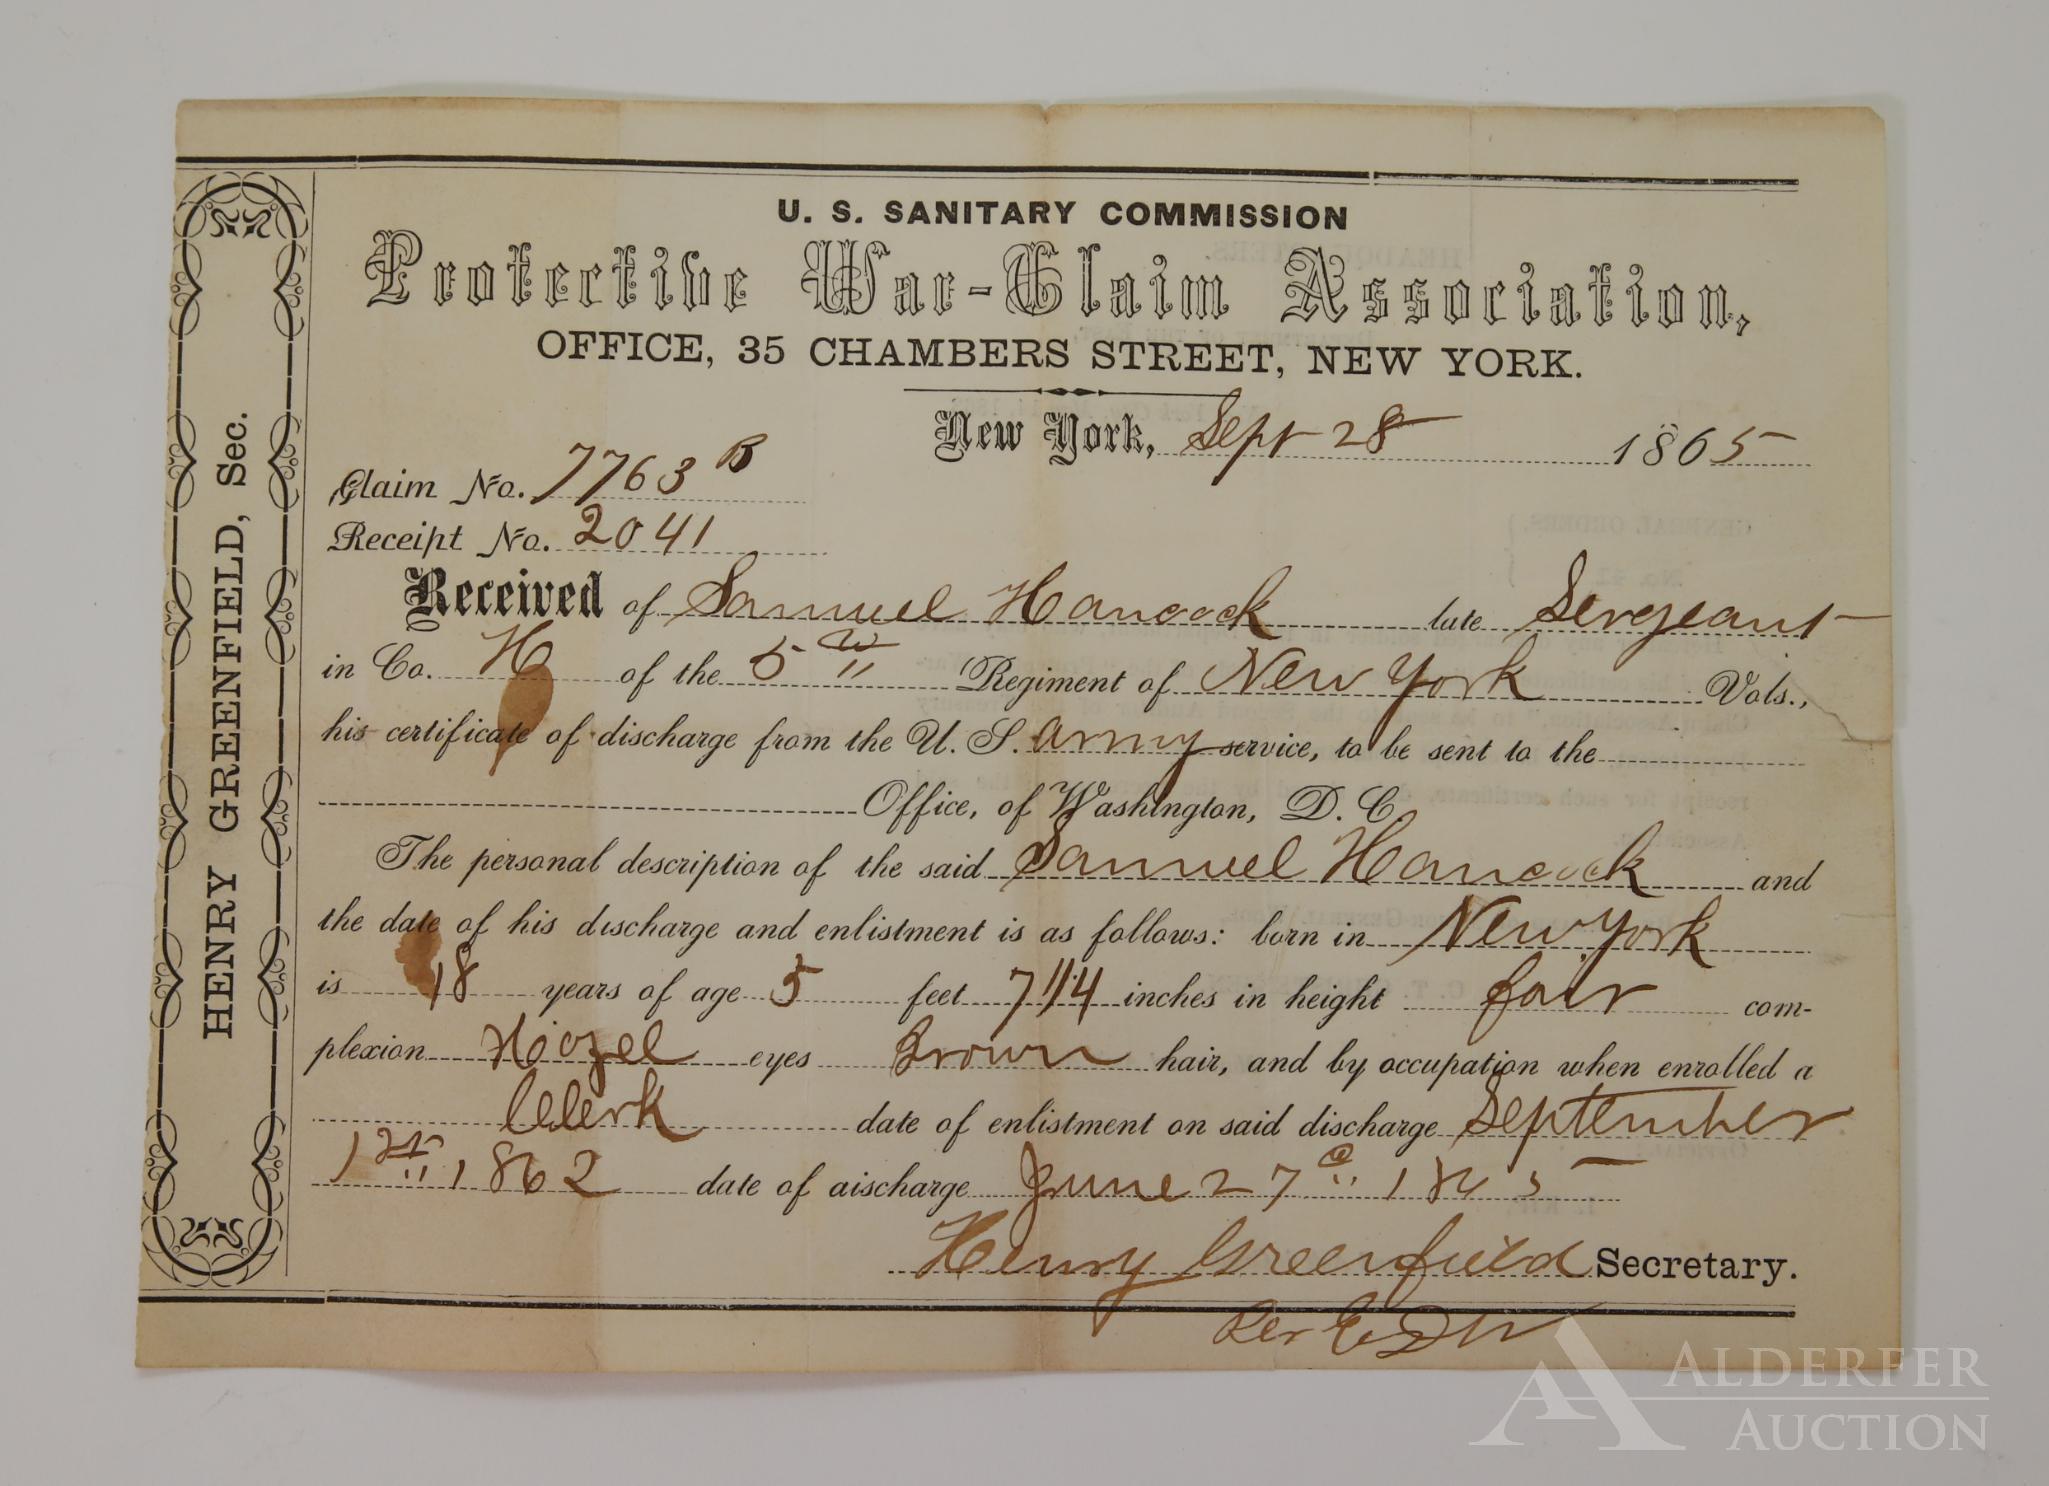 U. S. SANITARY COMMISSION
Protective War-Claim Association,
OFFICE, 35 CHAMBERS STREET, NEW YORK.
New York, Sept 28 1865
Claim No. 7763 B
Receipt No. 2041
Received of Samuel Hancock late Sergeant
in Co. H of the 5th Regiment of New York Vols.,
his certificate of discharge from the U. S. army service, to be sent to the
Office, of Washington, D. C
The personal description of the said Samuel Hancock and
the date of his discharge and enlistment is as follows: born in New York
is 18 years of age 5 feet 7 1/4 inches in height fair com-
plexion Hazel eyes Brown hair, and by occupation when enrolled a
Clerk date of enlistment on said discharge September
1st 1862 date of discharge June 27th 1865
Henry Greenfield Secretary.
Per
HENRY GREENFIELD, Sec.
ALDERFER
AUCTION